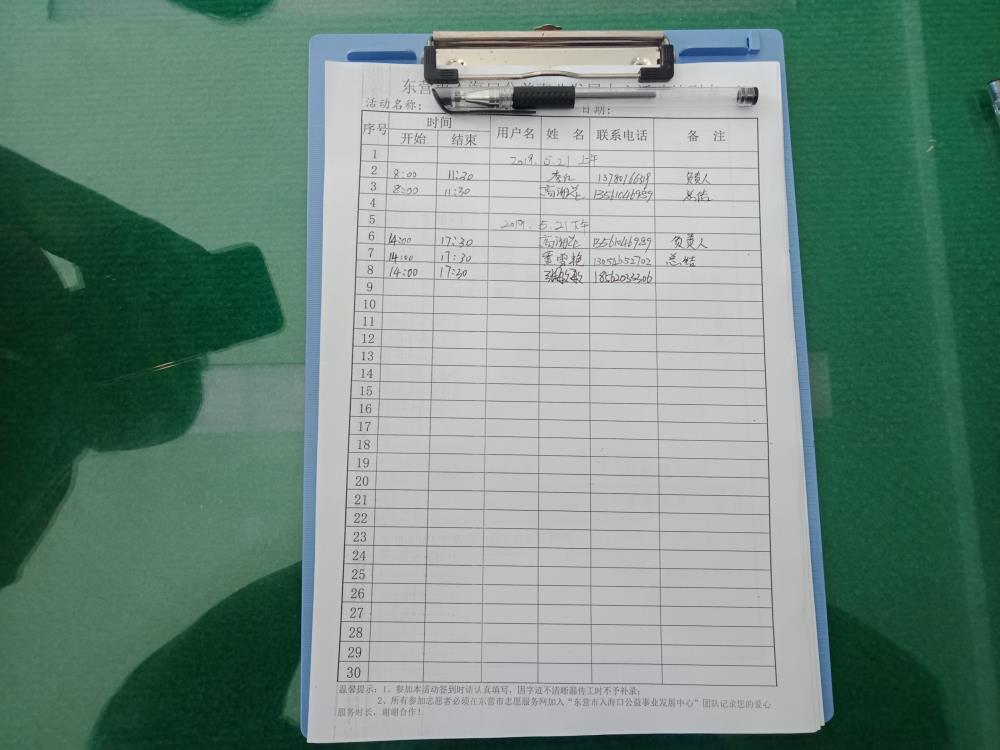 东营
活动名称： 日期：
序号 时间 用户名 姓 名 联系电话 备 注
开始 结束
1 2019.5.21 上午
2 8:00 11:30 负责人
3 8:00 11:30 总结
4
5 2019.5.21 下午
6 14:00 17:30 13561046989 负责人
7 14:00 17:30 总结
8 14:00 17:30
9
10
11
12
13
14
15
16
17
18
19
20
21
22
23
24
25
26
27
28
29
30
温馨提示：1、参加本活动签到时请认真填写，因字迹不清晰漏传工时不予补录；
2、所有参加志愿者必须在东营市志愿服务网加入“东营市入海口公益事业发展中心”团队记录您的爱心
服务时长，谢谢合作！